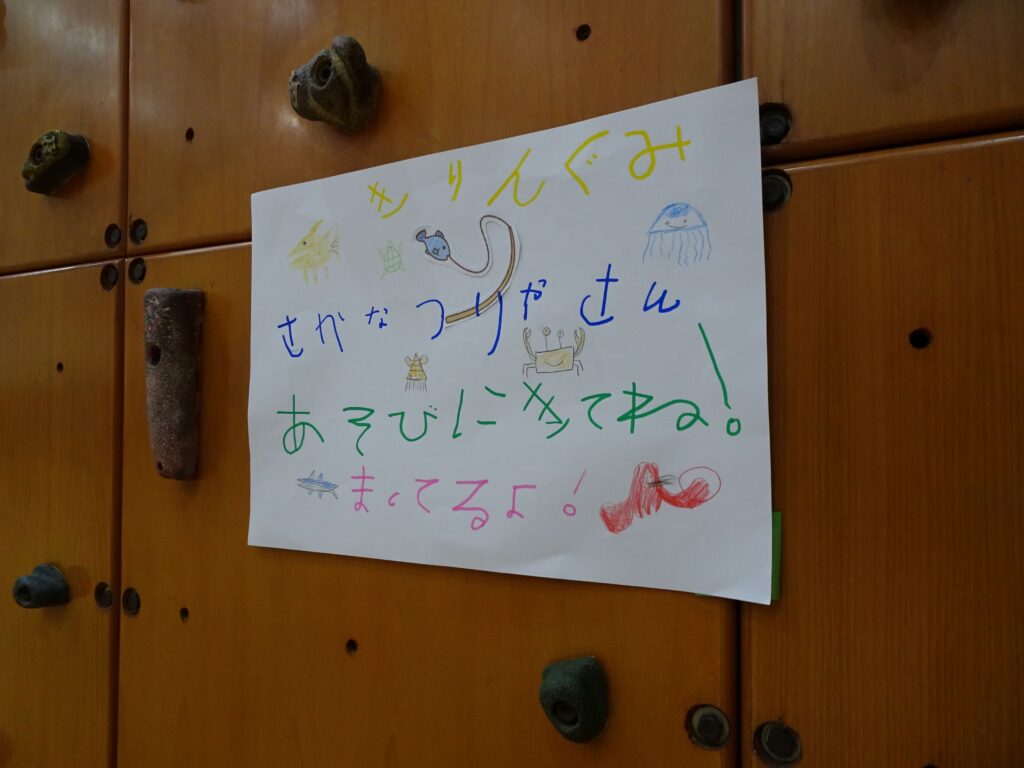 きりんぐみ
さかなつりやさん
あそびにきてね!
まってるよ!